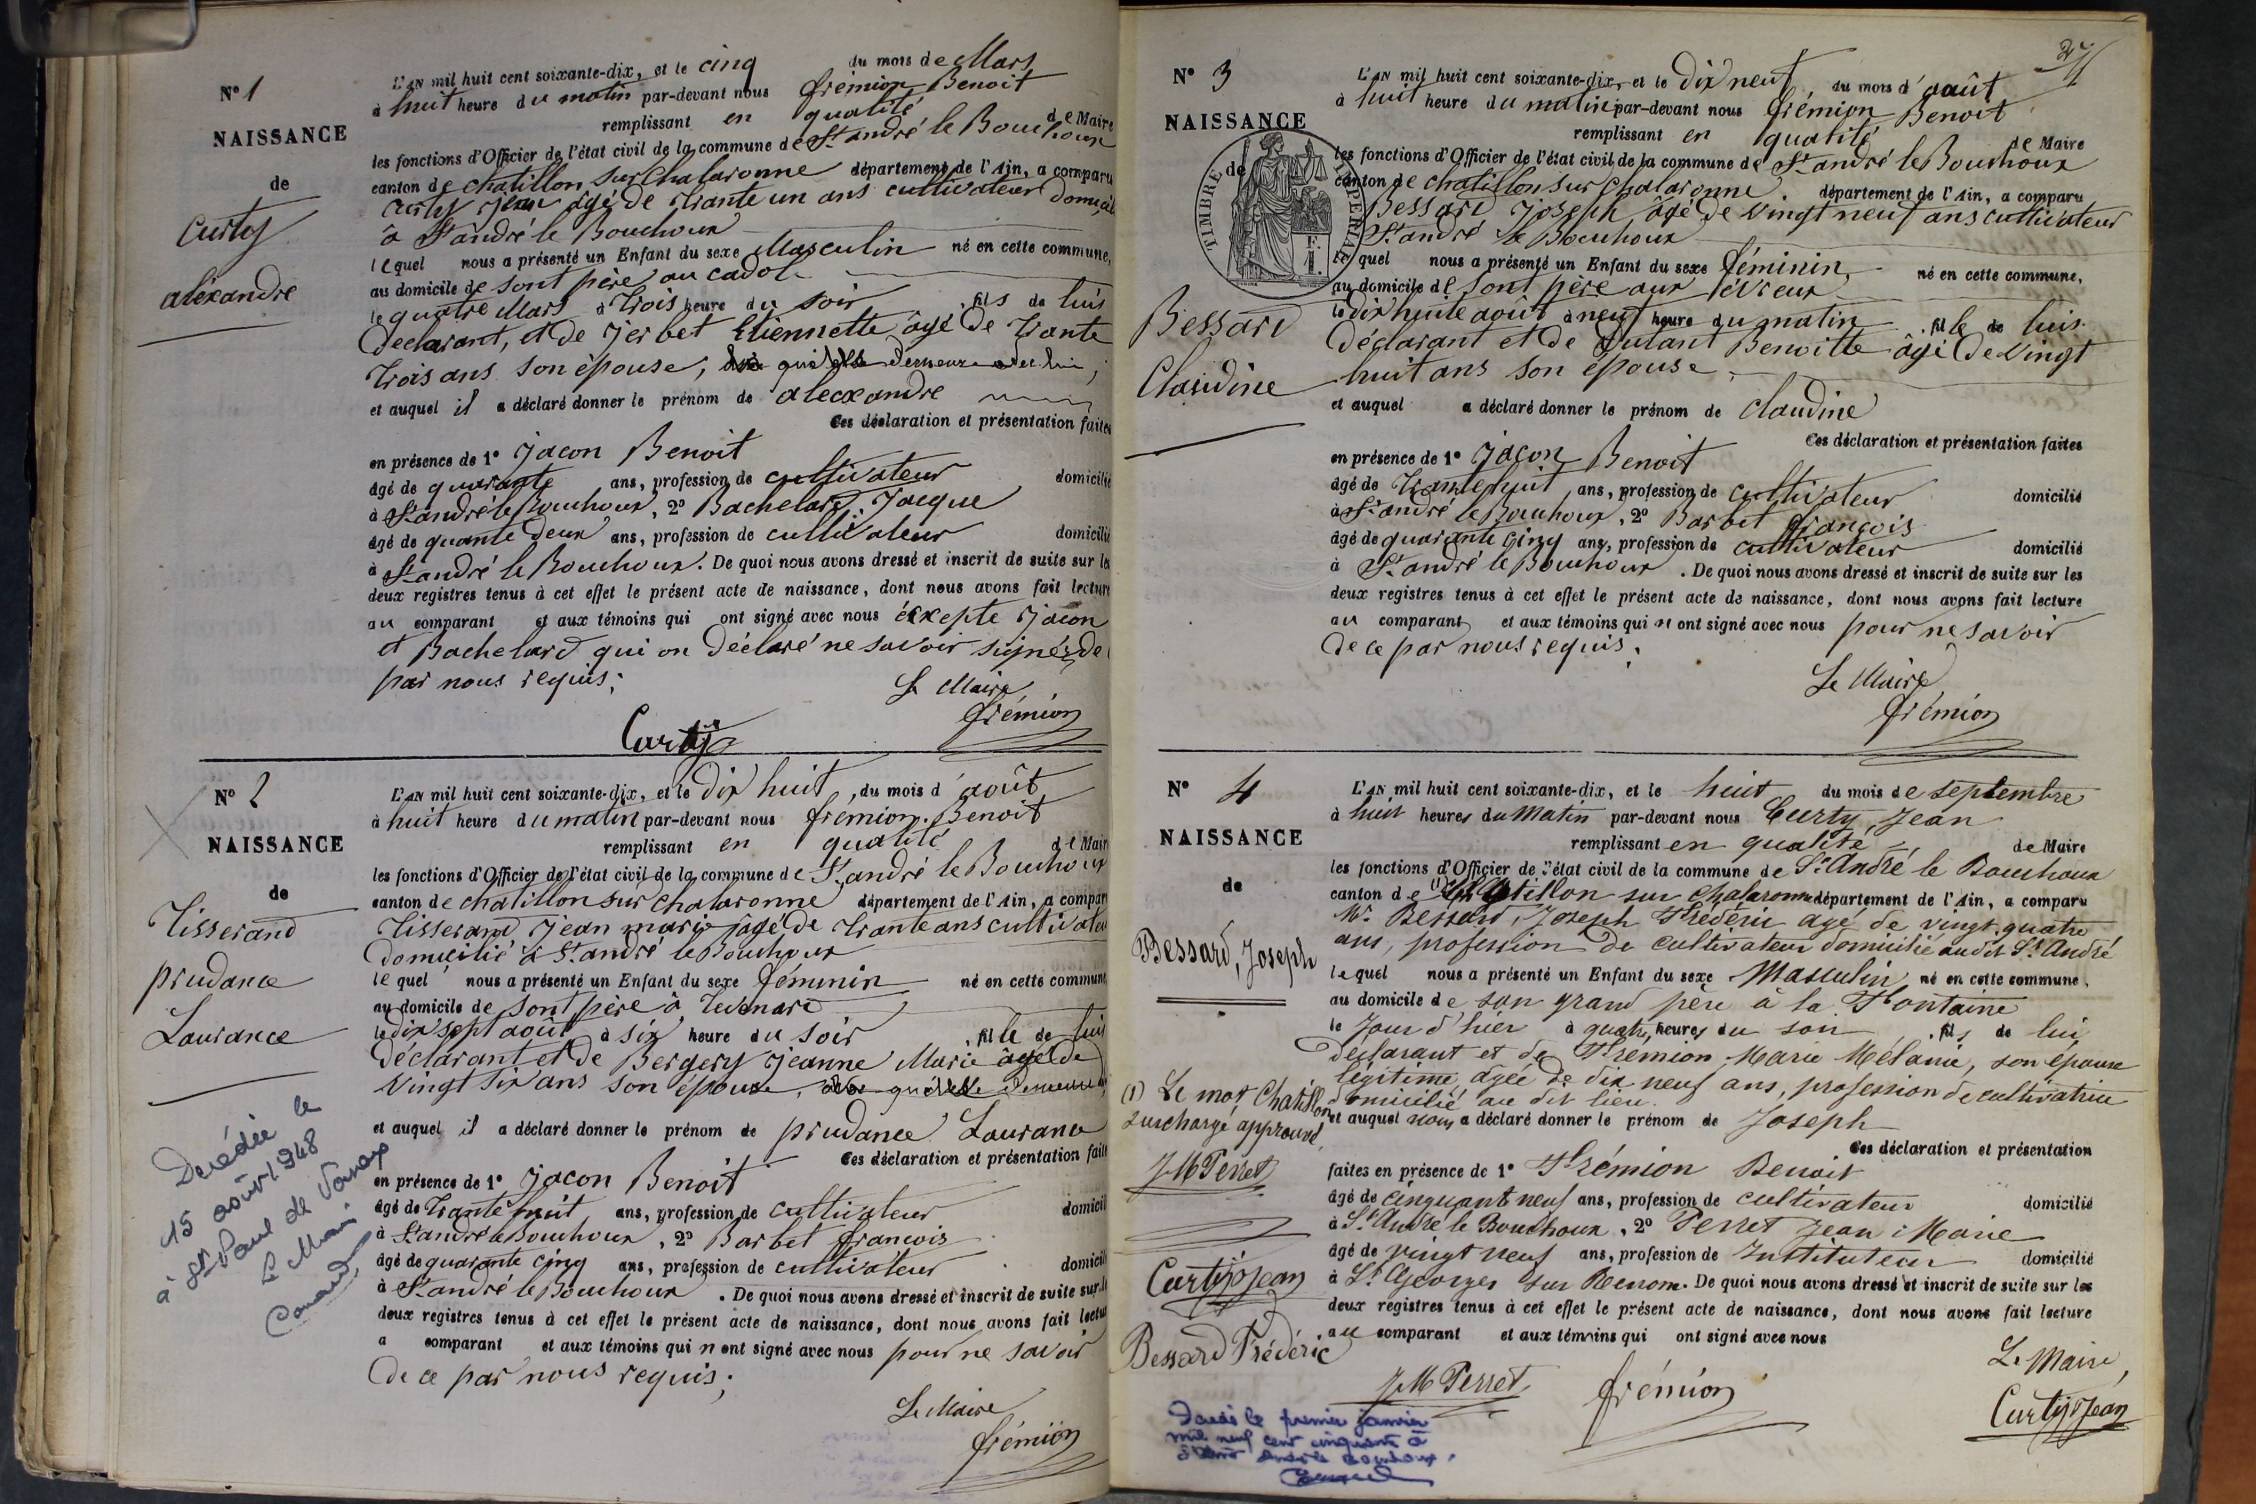 N° 1
NAISSANCE
de
Curty
aléxandre
L'AN mil huit cent soixante-dix, et le cinq du mois de Mars
à huit heure du matin par-devant nous frémion Benoit
remplissant en qualité de Maire
les fonctions d'Officier de l'état civil de la commune de St andré le Bouchoux
canton de chatillon sur chalaronne département de l'Ain, a comparu
Curty Jean âgé de trante un ans cultivateur domicil
à St andré le Bouchoux
lequel nous a présenté un Enfant du sexe Masculin né en cette commune,
au domicile de sont père au cadol
le quatre Mars à trois heure du soir, fils de luis
déclarant, et de Jerbet Etiennette âgé de trante
trois ans son épouse,
et auquel il a déclaré donner le prénom de alecxandre
Ces déclaration et présentation faites
en présence de 1° Jacon Benoit
âgé de quarante ans, profession de cultivateur domicilié
à St andré le Bouchoux, 2° Bachelard Jacque
âgé de quante deux ans, profession de cultivateur domicilié
à St andré le Bouchoux. De quoi nous avons dressé et inscrit de suite sur les
deux registres tenus à cet effet le présent acte de naissance, dont nous avons fait lecture
au comparant et aux témoins qui ont signé avec nous éxcepte Jacon
et Bachelard qui on déclaré ne savoir signér de
par nous requis;
Le Maire
frémion
Curty
N° 2
NAISSANCE
de
Tisserand
prudance
Laurance
L'AN mil huit cent soixante-dix, et le dix huit, du mois d'août
à huit heure du matin par-devant nous frémion Benoit
remplissant en qualité de Mair
les fonctions d'Officier de l'état civil de la commune de St andré le Bouchoux
canton de chatillon sur chalaronne département de l'Ain, a compar
Tisserand Jean marie âgé de trante ans cultivateu
domicilié à St andré le Bouchoux
le quel nous a présenté un Enfant du sexe féminin né en cette commune
au domicile de sont père à
le dix sept août à six heure du soir, fille de luis
déclarant et de Bergery jeanne Marie âgé de
vingt six ans son épouse,
et auquel il a déclaré donner le prénom de prudance Laurance
Ces déclaration et présentation fait
en présence de 1° Jacon Benoit
âgé de trante huit ans, profession de cultivateur domicil
à St andré le Bouchoux, 2° Barbet francois
âgé de quarante cinq ans, profession de cultivateur domicil
à St andré le Bouchoux. De quoi nous avons dressé et inscrit de suite sur le
deux registres tenus à cet effet le présent acte de naissance, dont nous avons fait lectu
a comparant et aux témoins qui n ont signé avec nous pour ne savoir
de ce par nous requis;
Le Maire
frémion
Decédée le
15 août 1948
à St Paul de Varax
Le Maire
N° 3
NAISSANCE
de
TIMBRE IMPERIAL
Bessard
Claudine
27
L'AN mil huit cent soixante-dix, et le dix neuf du mois d'août
à huit heure du matin par-devant nous frémion Benoit
remplissant en qualité de Maire
les fonctions d'Officier de l'état civil de la commune de St andré le Bouchoux
canton de chatillon sur chalaronne département de l'Ain, a comparu
Bessard Joseph âgé de vingt neuf ans cultivateur
St andré le Bouchoux
le quel nous a présenté un Enfant du sexe féminin, né en cette commune,
au domicile de sont père aux
le dix huite août à neuf heure du matin, fille de luis
déclarant et de Dutant Benoitte âgé de vingt
huit ans son épouse,
et auquel a déclaré donner le prénom de claudine
Ces déclaration et présentation faites
en présence de 1° Jacon Benoit
âgé de trante huit ans, profession de cultivateur domicilié
à St andré le Bouchoux, 2° Barbet françois
âgé de quarante cinq ans, profession de cultivateur domicilié
à St andré le Bouchoux. De quoi nous avons dressé et inscrit de suite sur les
deux registres tenus à cet effet le présent acte de naissance, dont nous avons fait lecture
au comparant et aux témoins qui n ont signé avec nous pour ne savoir
de ce par nous requis;
Le Maire
frémion
N° 4
NAISSANCE
de
Bessard, Joseph
L'AN mil huit cent soixante-dix, et le huit du mois de septembre
à huit heures du Matin par-devant nous Curty Jean
remplissant en qualité de Maire
les fonctions d'Officier de l'état civil de la commune de St André le Bouchoux
canton de (1) Chatillon sur Chalaronne département de l'Ain, a comparu
Mr Bessard, Joseph Frédéric agé de vingt quatre
ans, profession de cultivateur domicilié audit St André
lequel nous a présenté un Enfant du sexe Masculin né en cette commune,
au domicile de son grand père à la Fontaine
le Jour d'hier à quatre heures du soir, fils de lui
déclarant et de Frémion Marie Mélanie, son épouse
légitime, agée de dix neuf ans, profession de cultivatrice
domicilié au dit lieu.
et auquel nous a déclaré donner le prénom de Joseph
Ces déclaration et présentation
faites en présence de 1° Frémion Benoit
âgé de cinquant neuf ans, profession de cultivateur domicilié
à St André le Bouchoux, 2° Perret Jean Marie
âgé de vingt neuf ans, profession de Instituteur domicilié
à St Georges sur Renom. De quoi nous avons dressé et inscrit de suite sur les
deux registres tenus à cet effet le présent acte de naissance, dont nous avons fait lecture
au comparant et aux témoins qui ont signé avec nous
(1) Le mot Chatillon
surchargé approuvé
JM Perret
Curty Jean
Bessard Frédéric
JM Perret
frémion
Le Maire,
Curty Jean
Décédé le premier janvier
mil neuf cent cinquante à
Saint André le Bouchoux.